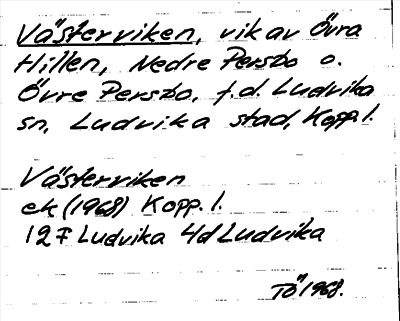 Västerviken, vik av Övra
Hillen, Nedre Persbo o.
Övre Persbo, f.d. Ludvika
sn, Ludvika stad, Kopp. l.
Västerviken
ek (1968) Kopp. l.
12F Ludvika 4d Ludvika
TÖ 1968.